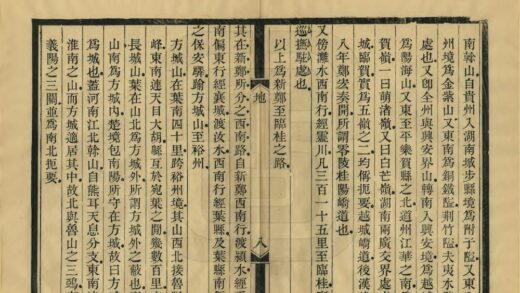 南幹山自貴州入湖南城步縣境爲附于隘又東
州境爲金紫山又東南爲銅鐵隘荆竹隘夫夷水
處也又卽全州與興安界山轉南入興安境爲越
爲陽海山又東至平樂賀縣之北道州江華之南
賀嶺一曰萌渚嶺又曰白芒嶺湖南兩廣交界處
城臨賀實爲五嶺之二均偁扼要越城嶠道後漢
八年鄭宏奏開所謂零陵桂陽嶠道也
又傍灕水西南行經靈川凡三百一十五里至臨桂
巡撫駐處也
以上爲新鄭至臨桂之路
地
八
其在新鄭所分之西南路自新鄭西南行渡潁水經
南偏東行經襄城渡汝水西南行經葉縣及葉縣南
之保安驛踰方城山至裕州
方城山在葉南四十里跨裕州境其山西北接魯
峯東南連天目大胡緜亙於宛葉之閒幾數百里
長城山葉在山北爲方城外所謂方城外之蔽也
山南爲方城内楚境包南陽所守在方城故曰方
爲城也蓋河南江北幹山自熊耳天息分支東南
淮南之山而方城適居其中故北與魯山之三鵶
義陽之三關並爲南北扼要